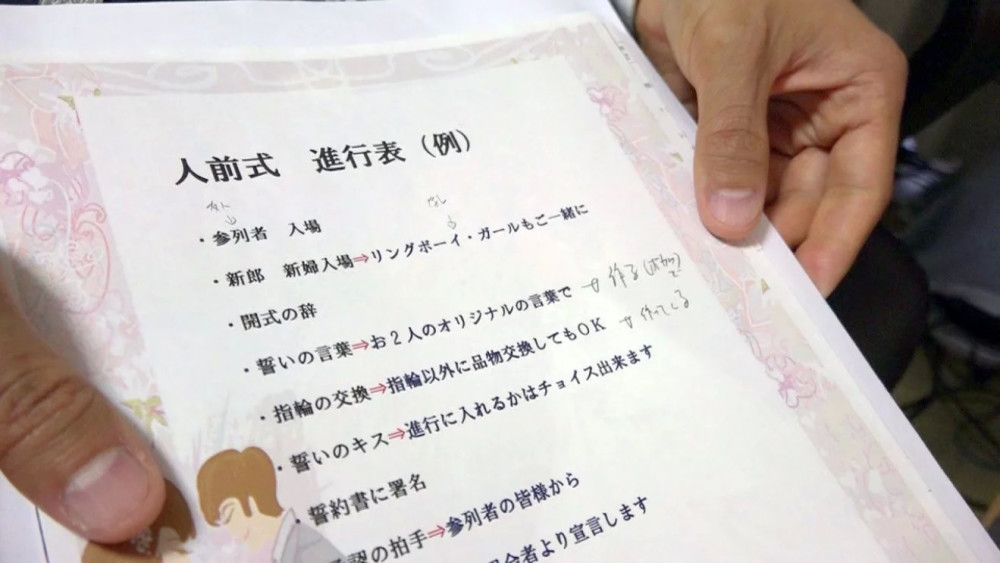 人前式　進行表（例）
・参列者　入場
・新郎　新婦入場⇒リングボーイ・ガールもご一緒に
・開式の辞
・誓いの言葉⇒お２人のオリジナルの言葉で
・指輪の交換⇒指輪以外に品物交換してもＯＫ
・誓いのキス⇒進行に入れるかはチョイス出来ます
・誓約書に署名
認の拍手⇒参列者の皆様から
会者より宣言します